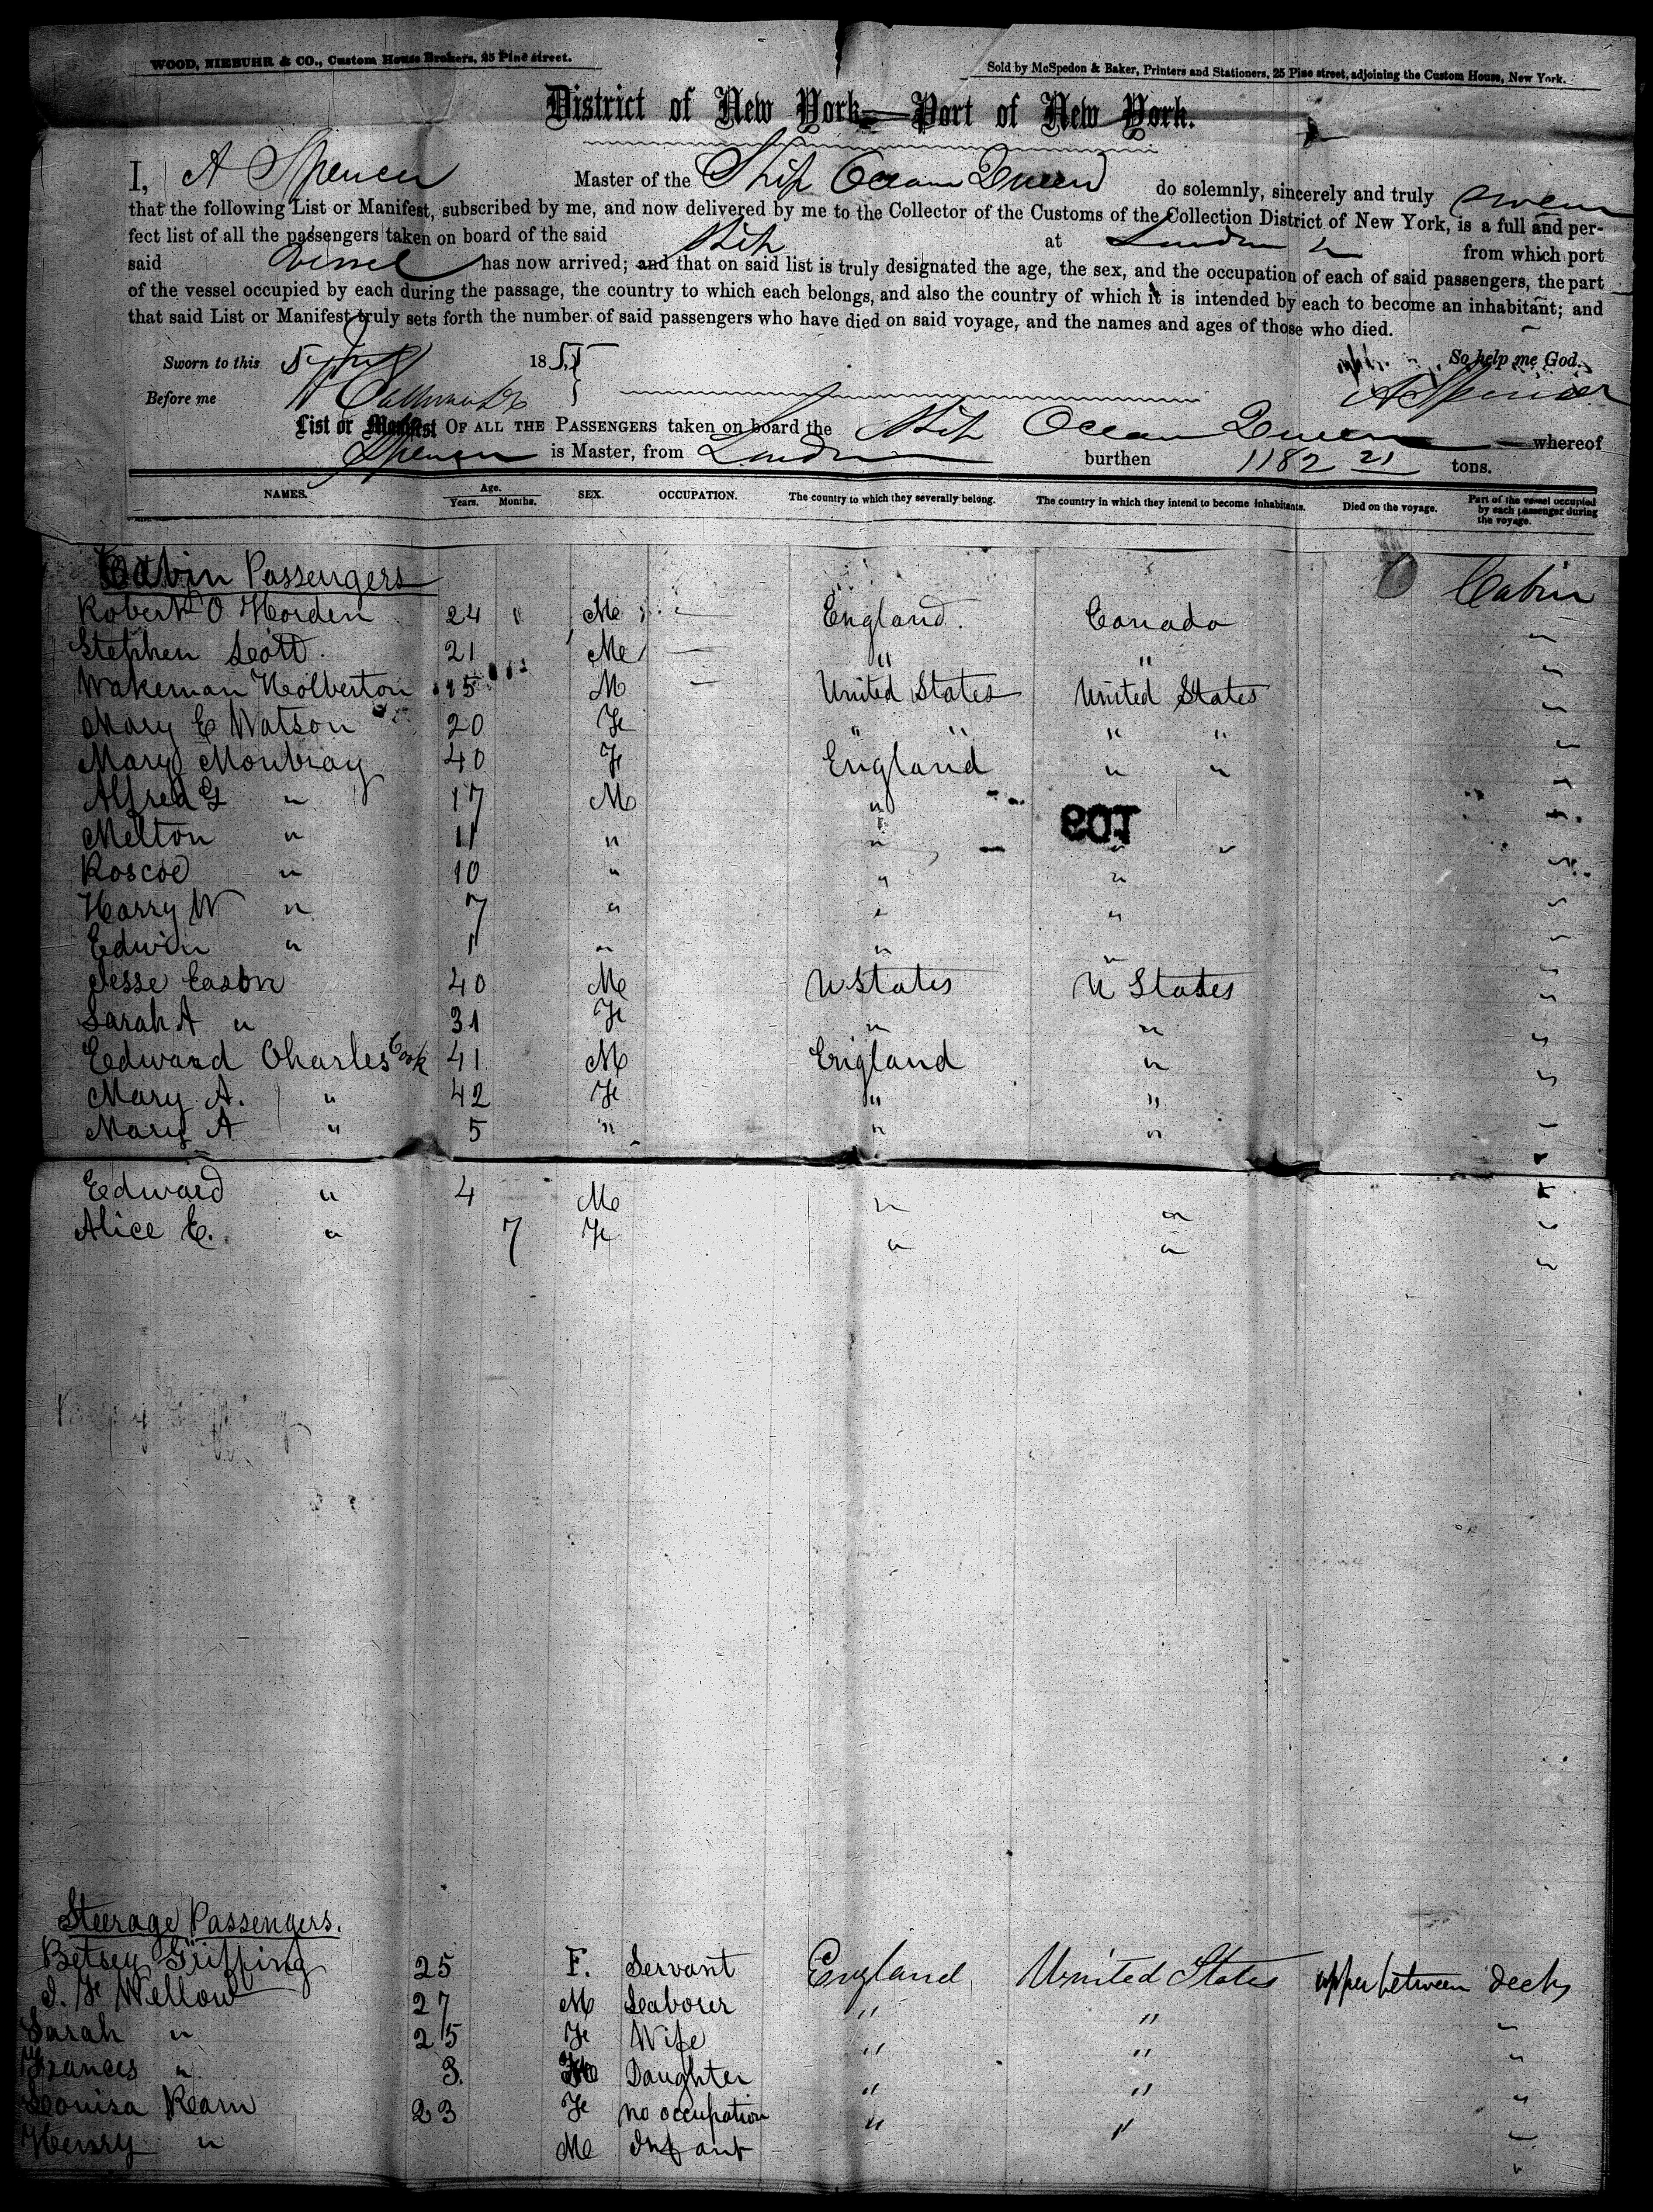 WOOD, NIEBUHR & CO., Custom House Brokers, 25 Pine street.
Sold by McSpedon & Baker, Printers and Stationers, 25 Pine street, adjoining the Custom House, New York.
District of New York—Port of New York.
I, A Spencer Master of the Ship Ocean Queen do solemnly, sincerely and truly swear
that the following List or Manifest, subscribed by me, and now delivered by me to the Collector of the Customs of the Collection District of New York, is a full and per-
fect list of all the passengers taken on board of the said Ship at London from which port
said Vessel has now arrived; and that on said list is truly designated the age, the sex, and the occupation of each of said passengers, the part
of the vessel occupied by each during the passage, the country to which each belongs, and also the country of which it is intended by each to become an inhabitant; and
that said List or Manifest truly sets forth the number of said passengers who have died on said voyage, and the names and ages of those who died.
Sworn to this 5 1855 So help me God.
Before me A Spencer
List or Manifest OF ALL THE PASSENGERS taken on board the Ship Ocean Queen whereof
Spencer is Master, from London burthen 1182 21 tons.
NAMES. Age. Years. Months. SEX. OCCUPATION. The country to which they severally belong. The country in which they intend to become inhabitants. Died on the voyage. Part of the vessel occupied by each passenger during the voyage.
Cabin Passengers Cabin
Robert O Horden 24 " Me — England. Canada "
Stephen Scott 21 Me — " " "
Wakeman Holberton 15 M — United States United States "
Mary E Watson 20 Fe " " " " "
Mary Monbray 40 Fe England " " "
Alfred G " 17 M " "
Melton " 11 " " " " "
Roscoe " 10 " " " "
Harry W " 7 " " " "
Edwin " 1 " " " "
Jesse Easton 40 Me U States U States "
Sarah A " 31 Fe " " "
Edward Charles Cook 41 M England " "
Mary A. " 42 Fe " " "
Mary A " 5 " " " "
Edward " 4 Me " " "
Alice E. " 7 Fe " " "
Steerage Passengers.
Betsey Griffing 25 F. Servant England United States upper between decks
J. H Wellow 27 M Leaborer " " "
Sarah " 25 Fe Wife " " "
Frances " 3. Daughter " " "
Louisa Kearn 23 Fe no occupation " " "
Henry " Me Infant "